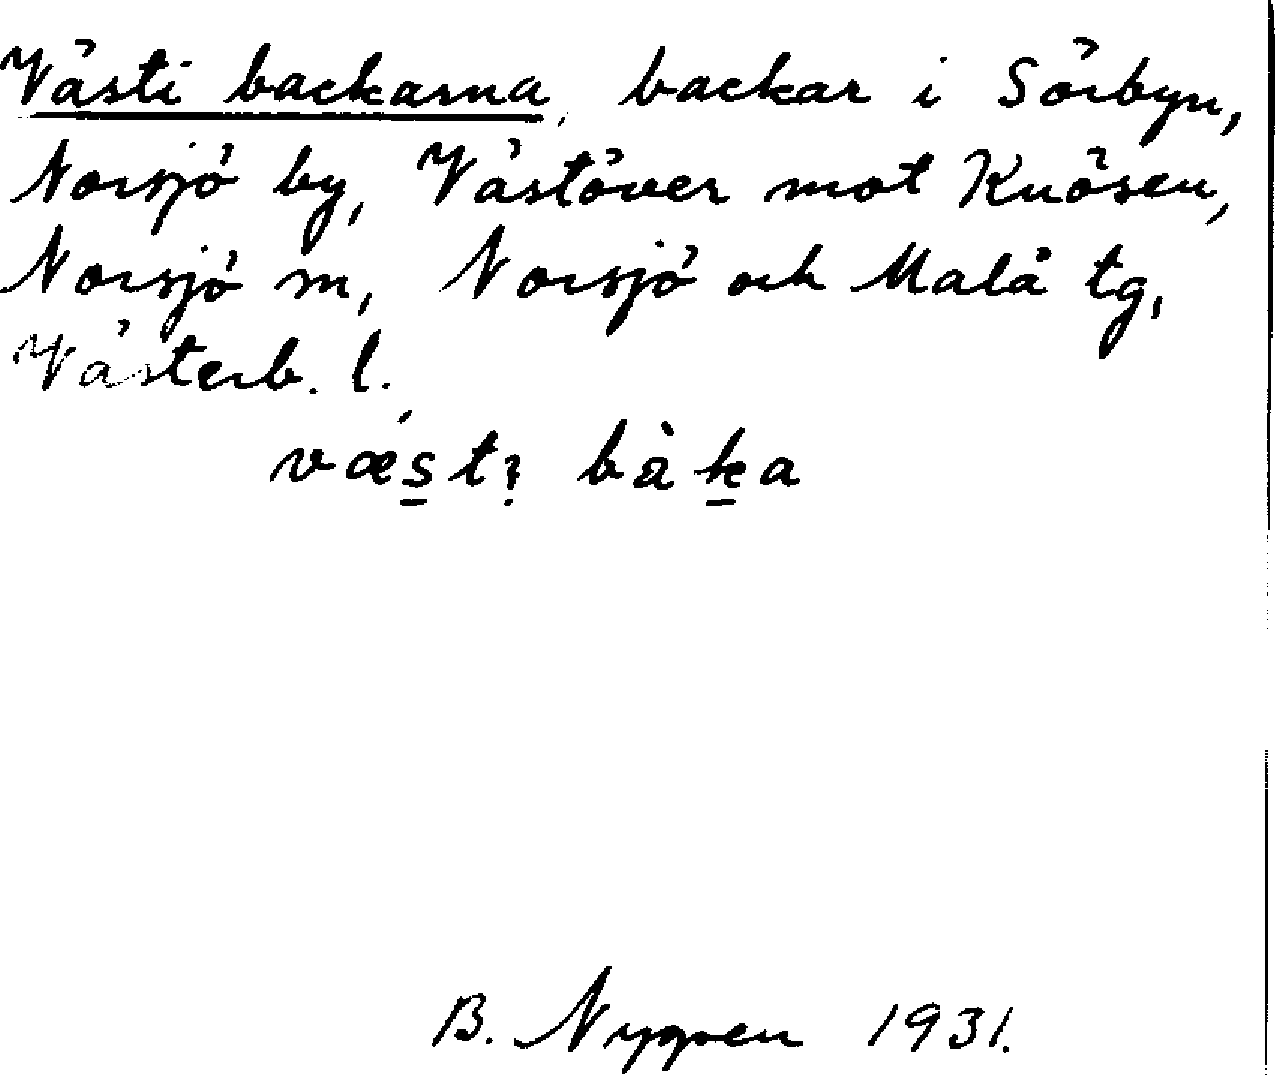 Västi backarna, backar i Sörbyn,
Norsjö by, Västöver mot Knösen,
Norsjö sn, Norsjö och Malå tg,
Västerb. l.
væ´s̲tı̣ bàk̲a
B. Nygren 1931.